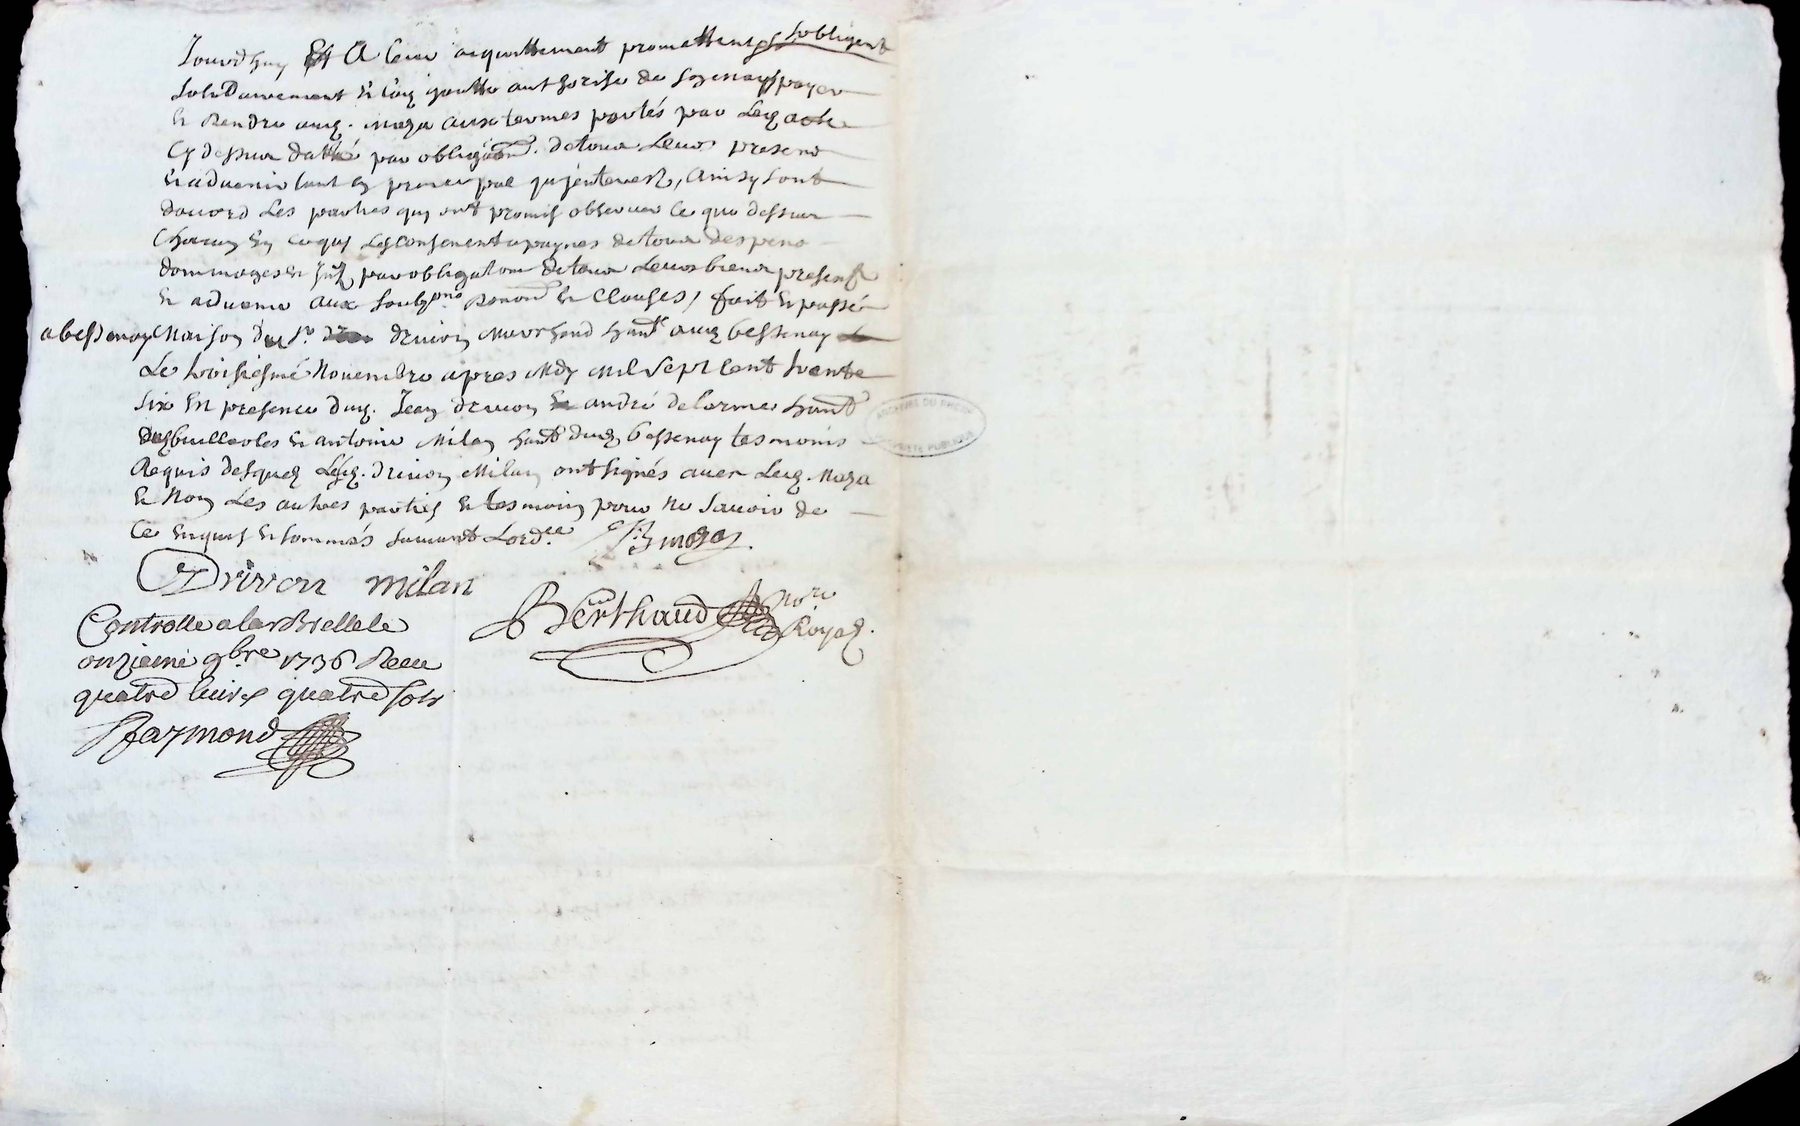 Jourdhuy Et A leur acquittement promettent & sobligent
solidairement Et loeq goutte authorise de payer
Et Rendre auq. moza aux termes portés par Leq acte
Cy dessus datté par obligaon. de tous Leurs presens
Et advenir tant En principal qujnterest, Ainsy sont
daccord Les parties quy ont promis observer Ce que dessus
Chacun En ce quy Les Consernent a paynes de tous despens
dommages Et Intz par obligation de tous Leurs biens presents
Et advenir aux soubzons Renonc Et Clauses, fait Et passé
a bessenay Maison du Sr. drivon Marchand hant auq bessenay
Le troisiesme Novembre apres Midy Mil sept Cent trente
six En presence duq. Jean drivon andré delorme hant
Et antoine Milan hant duq bessenay tesmoins
Requis desquels Lesq. drivon Milan ont signés avec Leq. Moza
Et Non Les autres parties Et tesmoins pour Ne savoir de
Ce Enquis Et sommés suivant Lordce
moza
Drivon milan
Berthaud Nore
Royal.
Controlle a larbrelle le
onzieme 9bre 1736 Receu
quatre livres quatre sols
Raymond
ARCHIVES DU RHONE
PROPRIETE PUBLIQUE